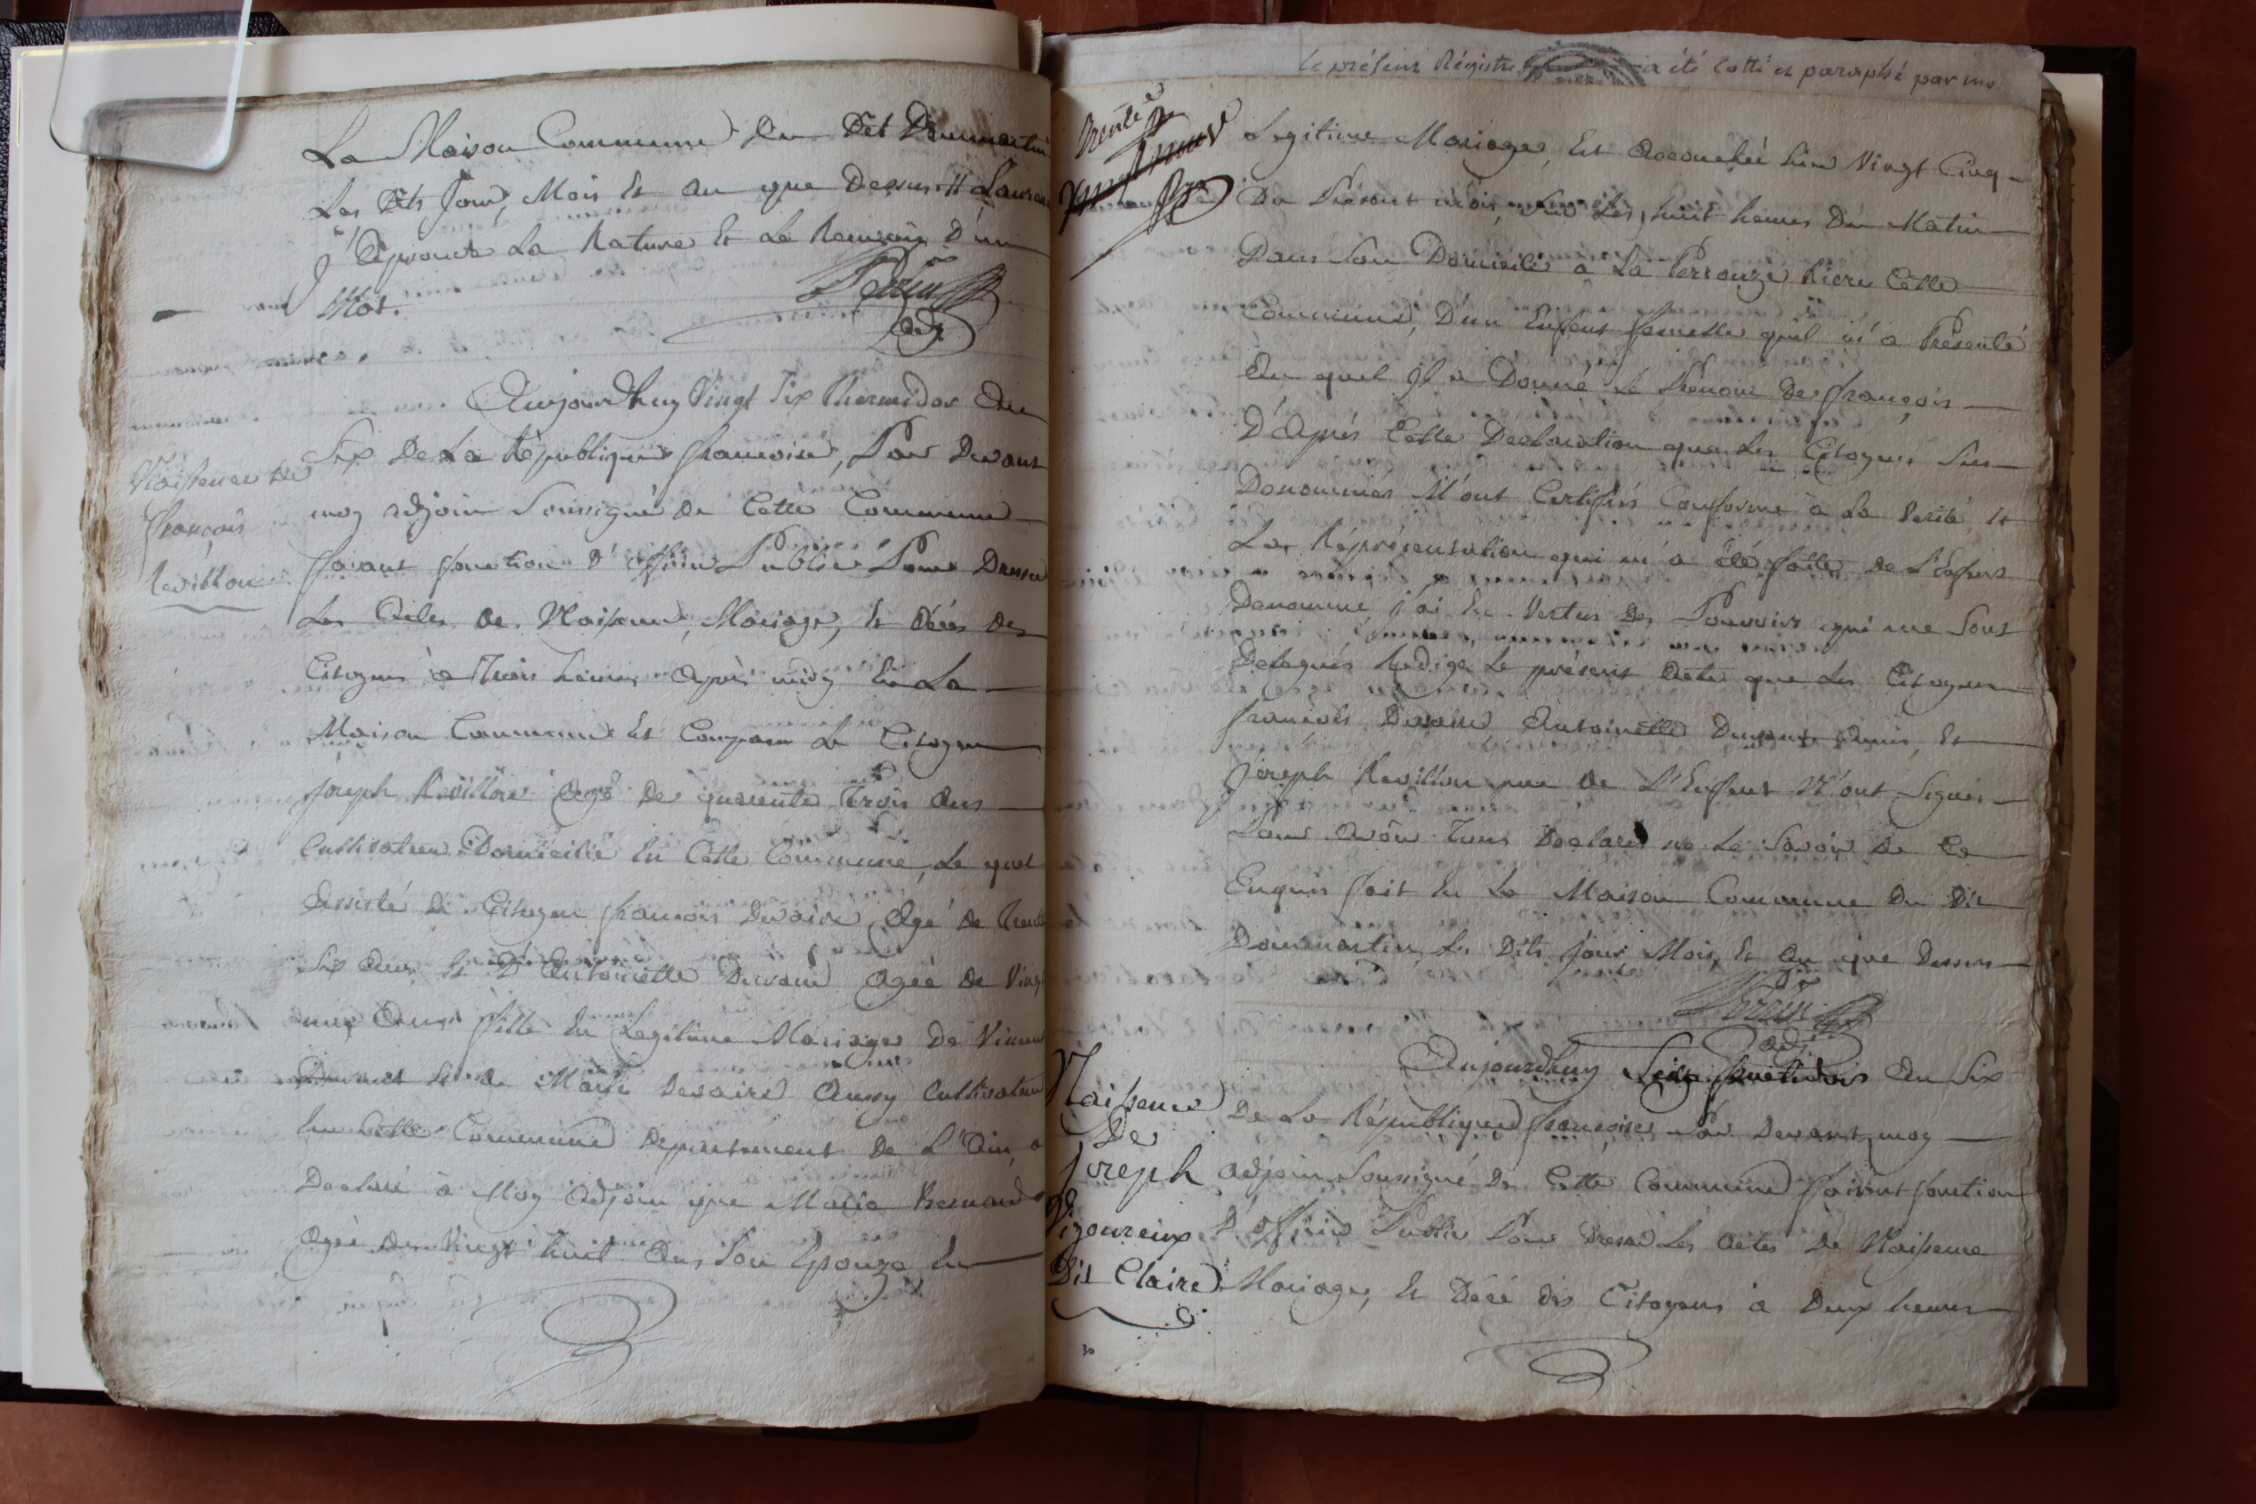 La Maison Commune du dit Dommartin
Les dits Jour, Mois et an que Dessus //
J'approuve La Rature et Le Renvoy D'un
Mot.
adj.
Aujourdhuy Vingt Six Thermidor an
Six De La République francoise, Par Devant
moy adjoin Soussigné de Cette Commune
faisant fonction d'officier Public Pour Dresser
Les Actes de Naissence, Mariage, et décès des
Citoyens à Trois heures après midy En La
Maison Commune Est Comparu Le Citoyen
Joseph Revillon agé de quarente Trois ans
Cultivateur Domicilié En Cette Commune, Le quel
assisté du Citoyen francois Devaire agé de Trente
Six ans, et d'Antoinette Durand agée de Vingt
ans fille En Legitime Mariage De Vincent
Durand et de Marie Devaire aussy Cultivateur
En Cette Commune Departement de L'Ain, a
Declaré à Moy adjoin que Marie Bernard
agée de Vingt huit ans Son Epouze En
Naissence de
francois
Revillon
le présent Régistre a été Cotté et paraphé par moy
Trente
Legitime Mariage, Est accouchée hier Vingt Cinq
Du Présent mois, Sur Les huit heures Du Matin
Dans Son Domicile a La Perrouze Riere Cette
Commune, D'un Enfent femelle qu'il m'a Présenté
Au quel Jl a Donné Le Prenom De françois
D'après Cette Declaration que Les Citoyens Sus
Denommés M'ont Certifiés Conforme a La Verité, et
La Répresentation qui m'a été faite de L'Enfent
Denommé j'ai En Vertus Des Pouvoirs qui me Sont
Delegués Redigé Le présent Acte que Les Citoyens
francois Devaire Antoinette Durand amis, et
Joseph Revillon pere de L'Enfent N'ont Signés
Pour avoir Tous Declaré ne Le Savoir De Ce
Enquis fait En La Maison Commune Du Dit
Dommartin Les Dits Jour Mois, et an que Dessus
adj.
Aujourdhuy Seize fructidor an Six
De La République francoise Par Devant moy
adjoin Soussigné De Cette Commune faisant fonction
D'officier Public Pour Dresser Les actes De Naissence
Mariage, et Décé des Citoyens à Deux heures
Naissence
De
Joseph
Vigoureux
Dit Claire
30